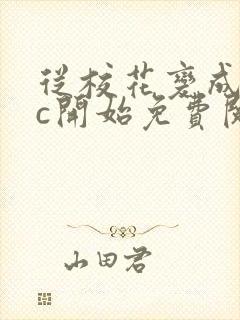 從校花變成
c開始免費閱
山田君